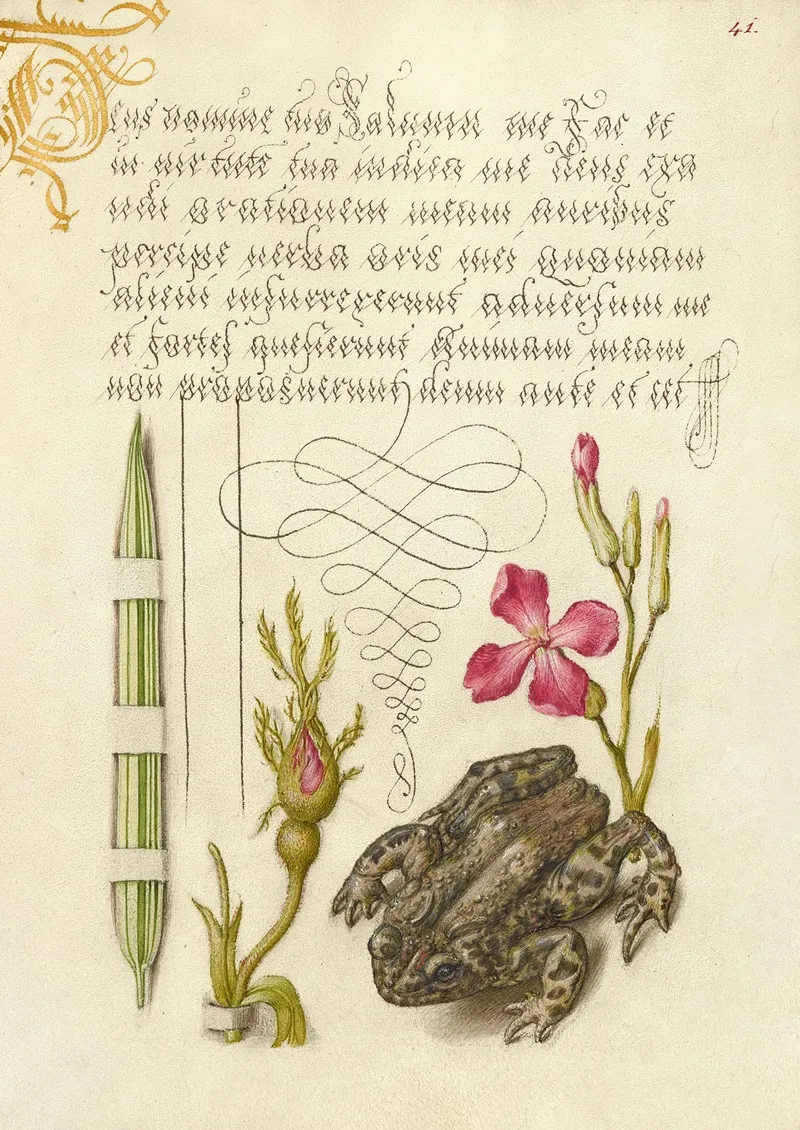 41.
Deus nomine tuo Saluum me Fac et
in uirtute tua iudica me deus exa
udi orationem meam auribus
percipe uerba oris mei quoniam
alieni insurrexerunt aduersum me
et fortes quesierunt Animam meam
non proposuerunt deum ante et cet